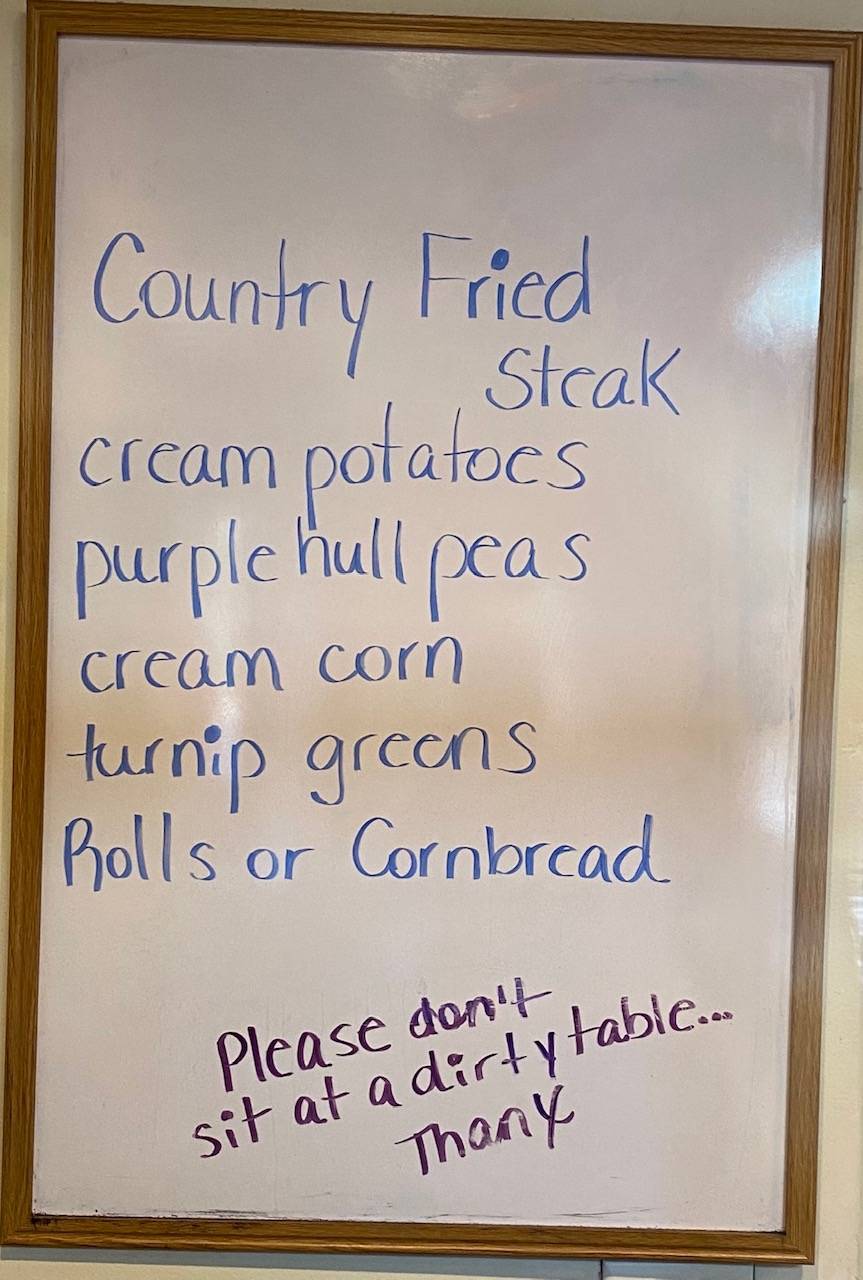 Country Fried
Steak
cream potatoes
purple hull peas
cream corn
turnip greens
Rolls or Cornbread
Please don't
sit at a dirty table...
Thanx